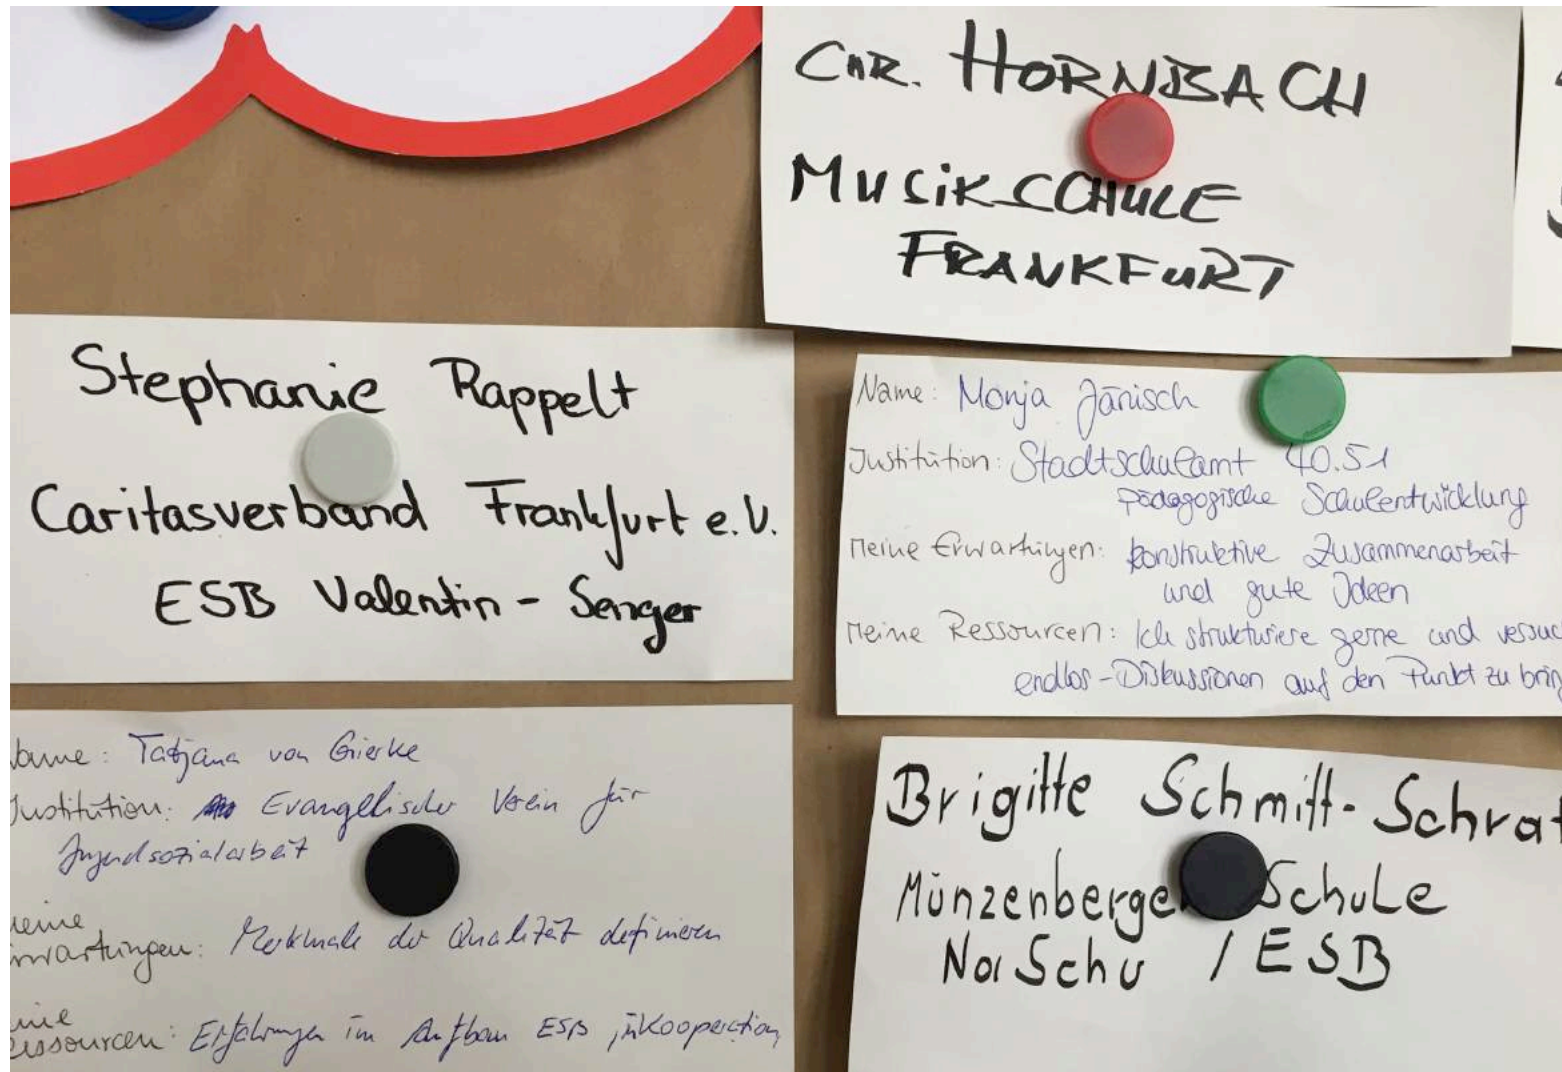 CHR. HORNBACH
MUSIKSCHULE
FRANKFURT
Stephanie Rappelt
Caritasverband Frankfurt e.V.
ESB Valentin-Senger
Name: Monja Jänisch
Institution: Stadtschulamt 40.51
pädagogische Schulentwicklung
Meine Erwartungen: konstruktive Zusammenarbeit
und gute Ideen
Meine Ressourcen: Ich strukturiere gerne und
endlos-Diskussionen auf den Punkt zu
Name: Tatjana von Gierke
Institution: Evangelischer Verein für
Jugendsozialarbeit
Merkmale der Qualität definieren
Erfahrungen im Aufbau ESB, Kooperation
Brigitte Schmitt-
Münzenberge Schule
NaSchu / ESB